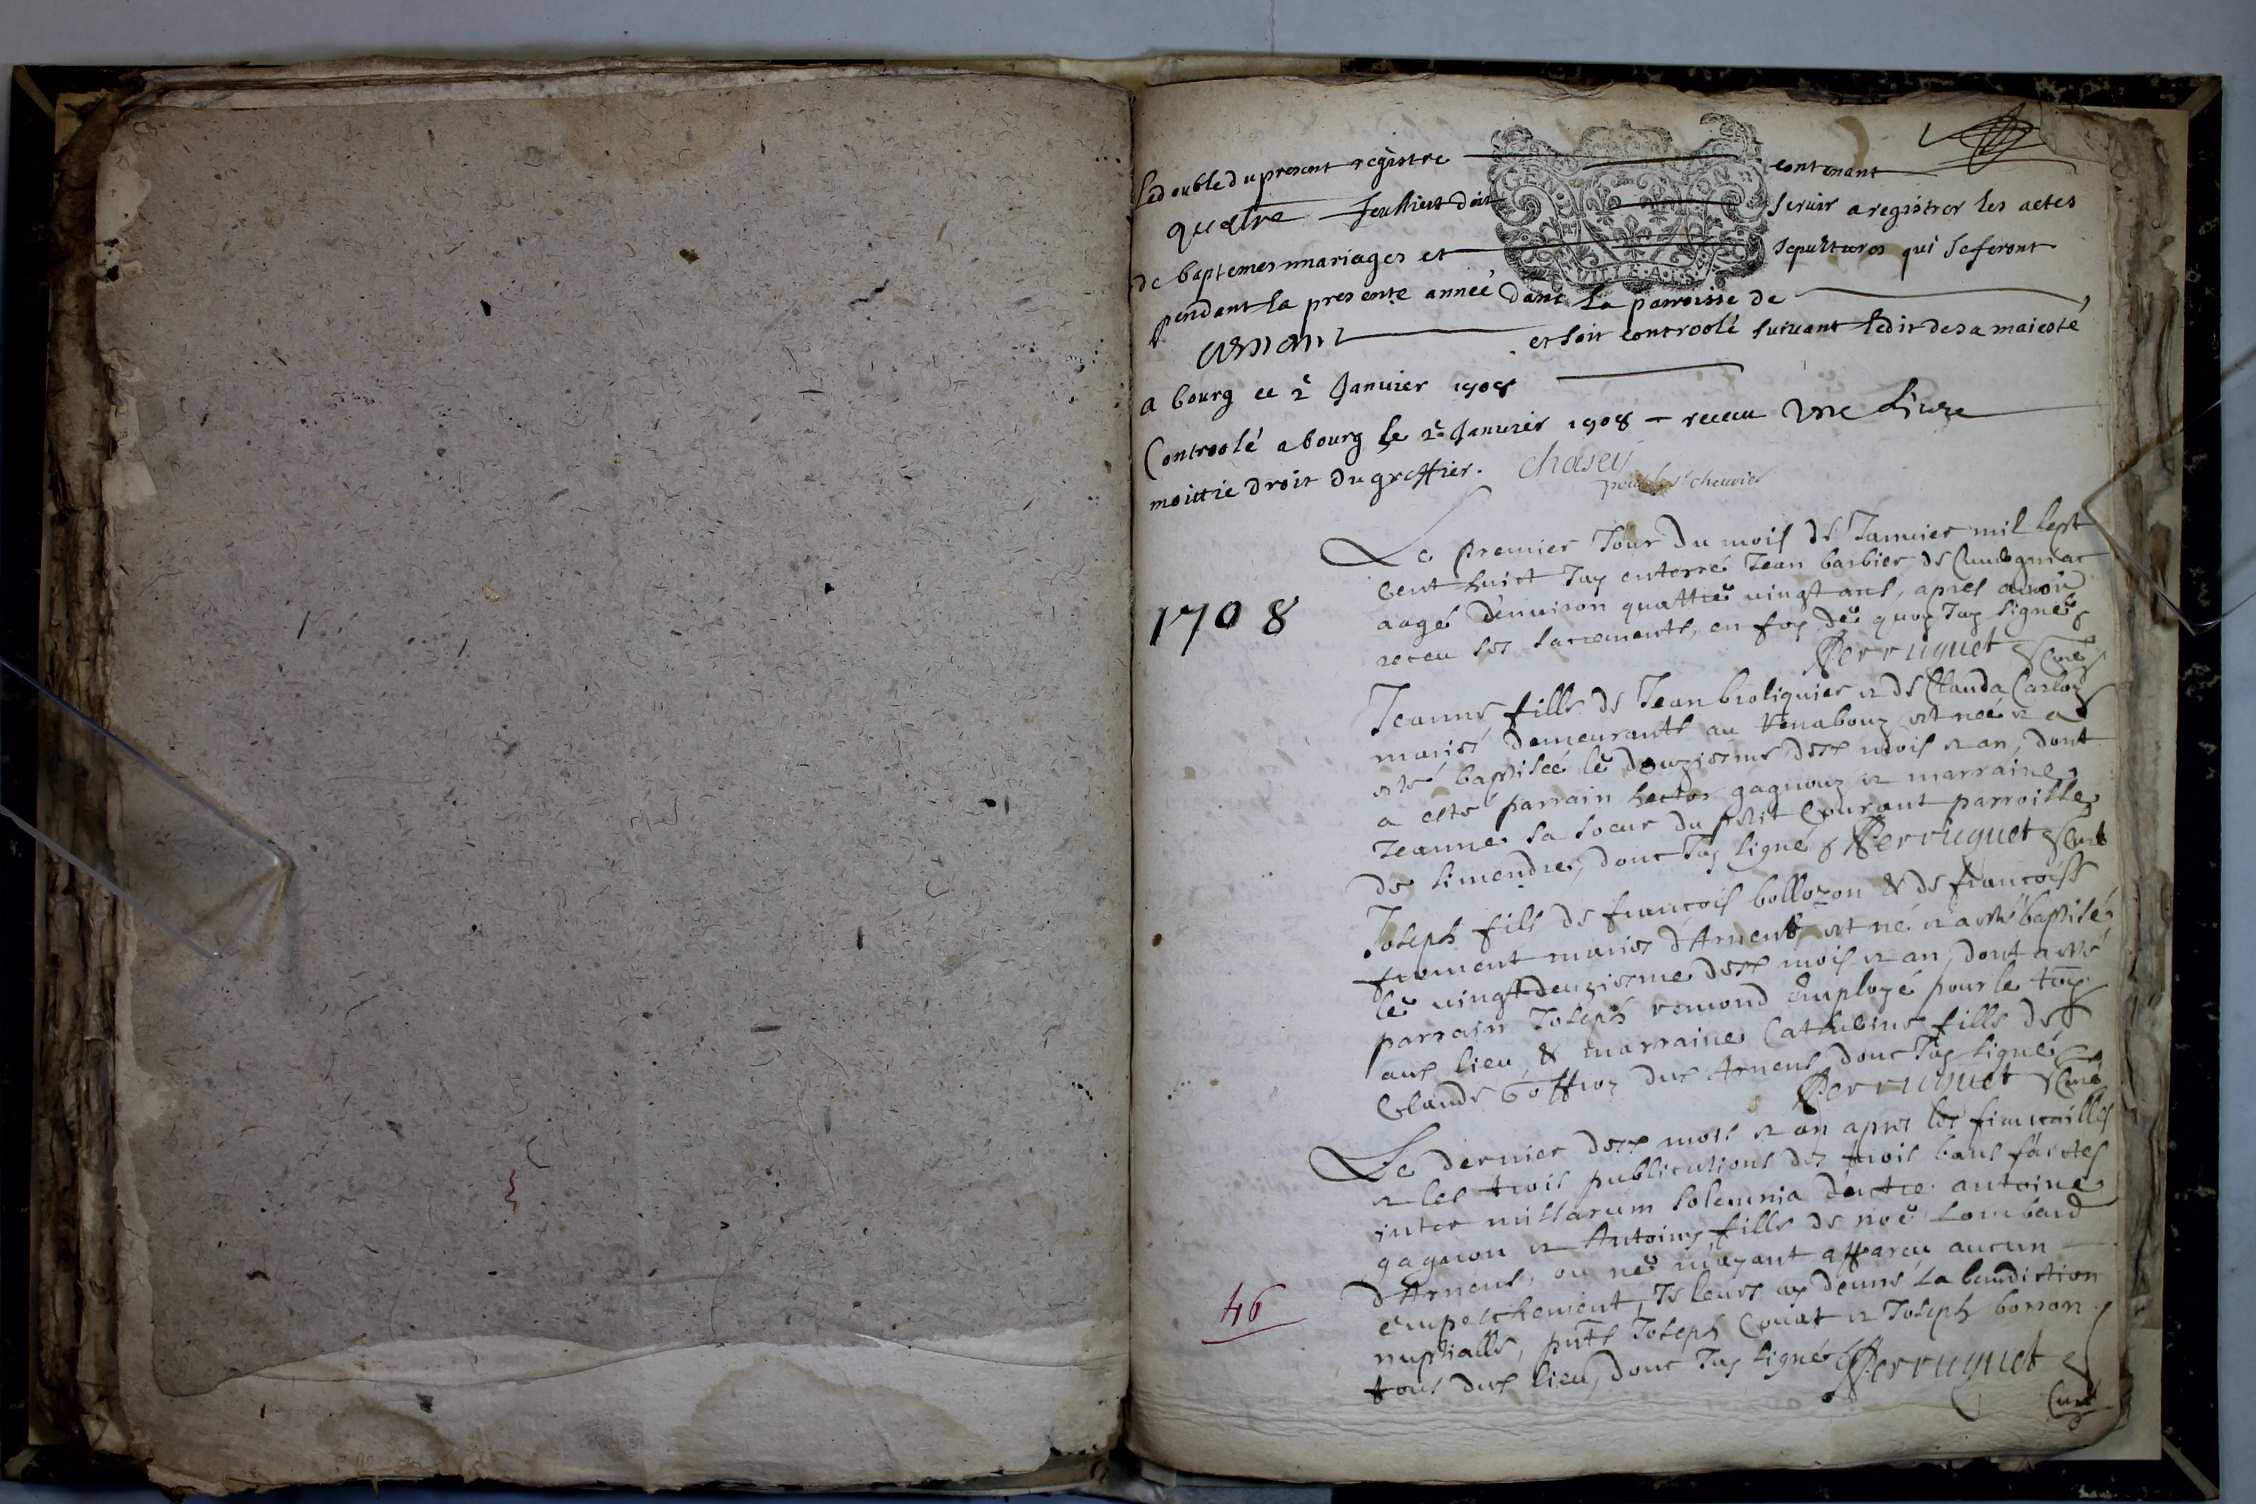 Le double du present registre contenant
quatre feulliets doit servir a registrer les actes
de baptemes mariages et sepultures qui se feront
pendant la presente année dans la parroisse de
arnans et soit controolé suivant ledit de sa maiesté
a bourg ce 2e Janvier 1708
Controolé a bourg le 2e Janvier 1708 - receu une livre
moittie droit du greffier. Chasey
pour le Sr chevrier
GENERALITE DIJON
1708
Le premier Jour du mois de Janvier mil sept
cent huict Jay enterré Jean barbier de
aagé denviron quattre vingt ans, apres avoir
receu ses sacrements, en foy de quoy Jay signé
Perruquet Curé
Jeanne fille de Jean broliquier et de Clauda Carloz
mariés demeurants au est née et a
esté baptisée le douziesme desd mois et an, dont
a esté parrain hector gagnouz et marraine
Jeanne sa soeur du petit Courant parroisse
de simandre, dont Jay signé Perruquet Curé
Joseph fils de francois bollozon & de francoise
froment mariés d'Arnens est né et a esté baptisé
le vingt deuziesme desd mois et an, dont a esté
parrain Joseph remond employé pour le
aud lieu, & marraine Catherine fille de
Claude Goffioz dud Arnens, dont Jay signé
Perruquet Curé
Le dernier desd mois et an apres les fiancailles
et les trois publications des trois bans faictes
inter missarum solemnia dentre antoine
gagnon et Antoine fille de noé Lombard
d'Arnens, ou ne m'ayant apparu aucun
empeschement, Je leurs ay donné la benediction
nuptialle, pnts Joseph Convat et Joseph borron
tous dud lieu, dont Jay signé Perruquet
Curé
46